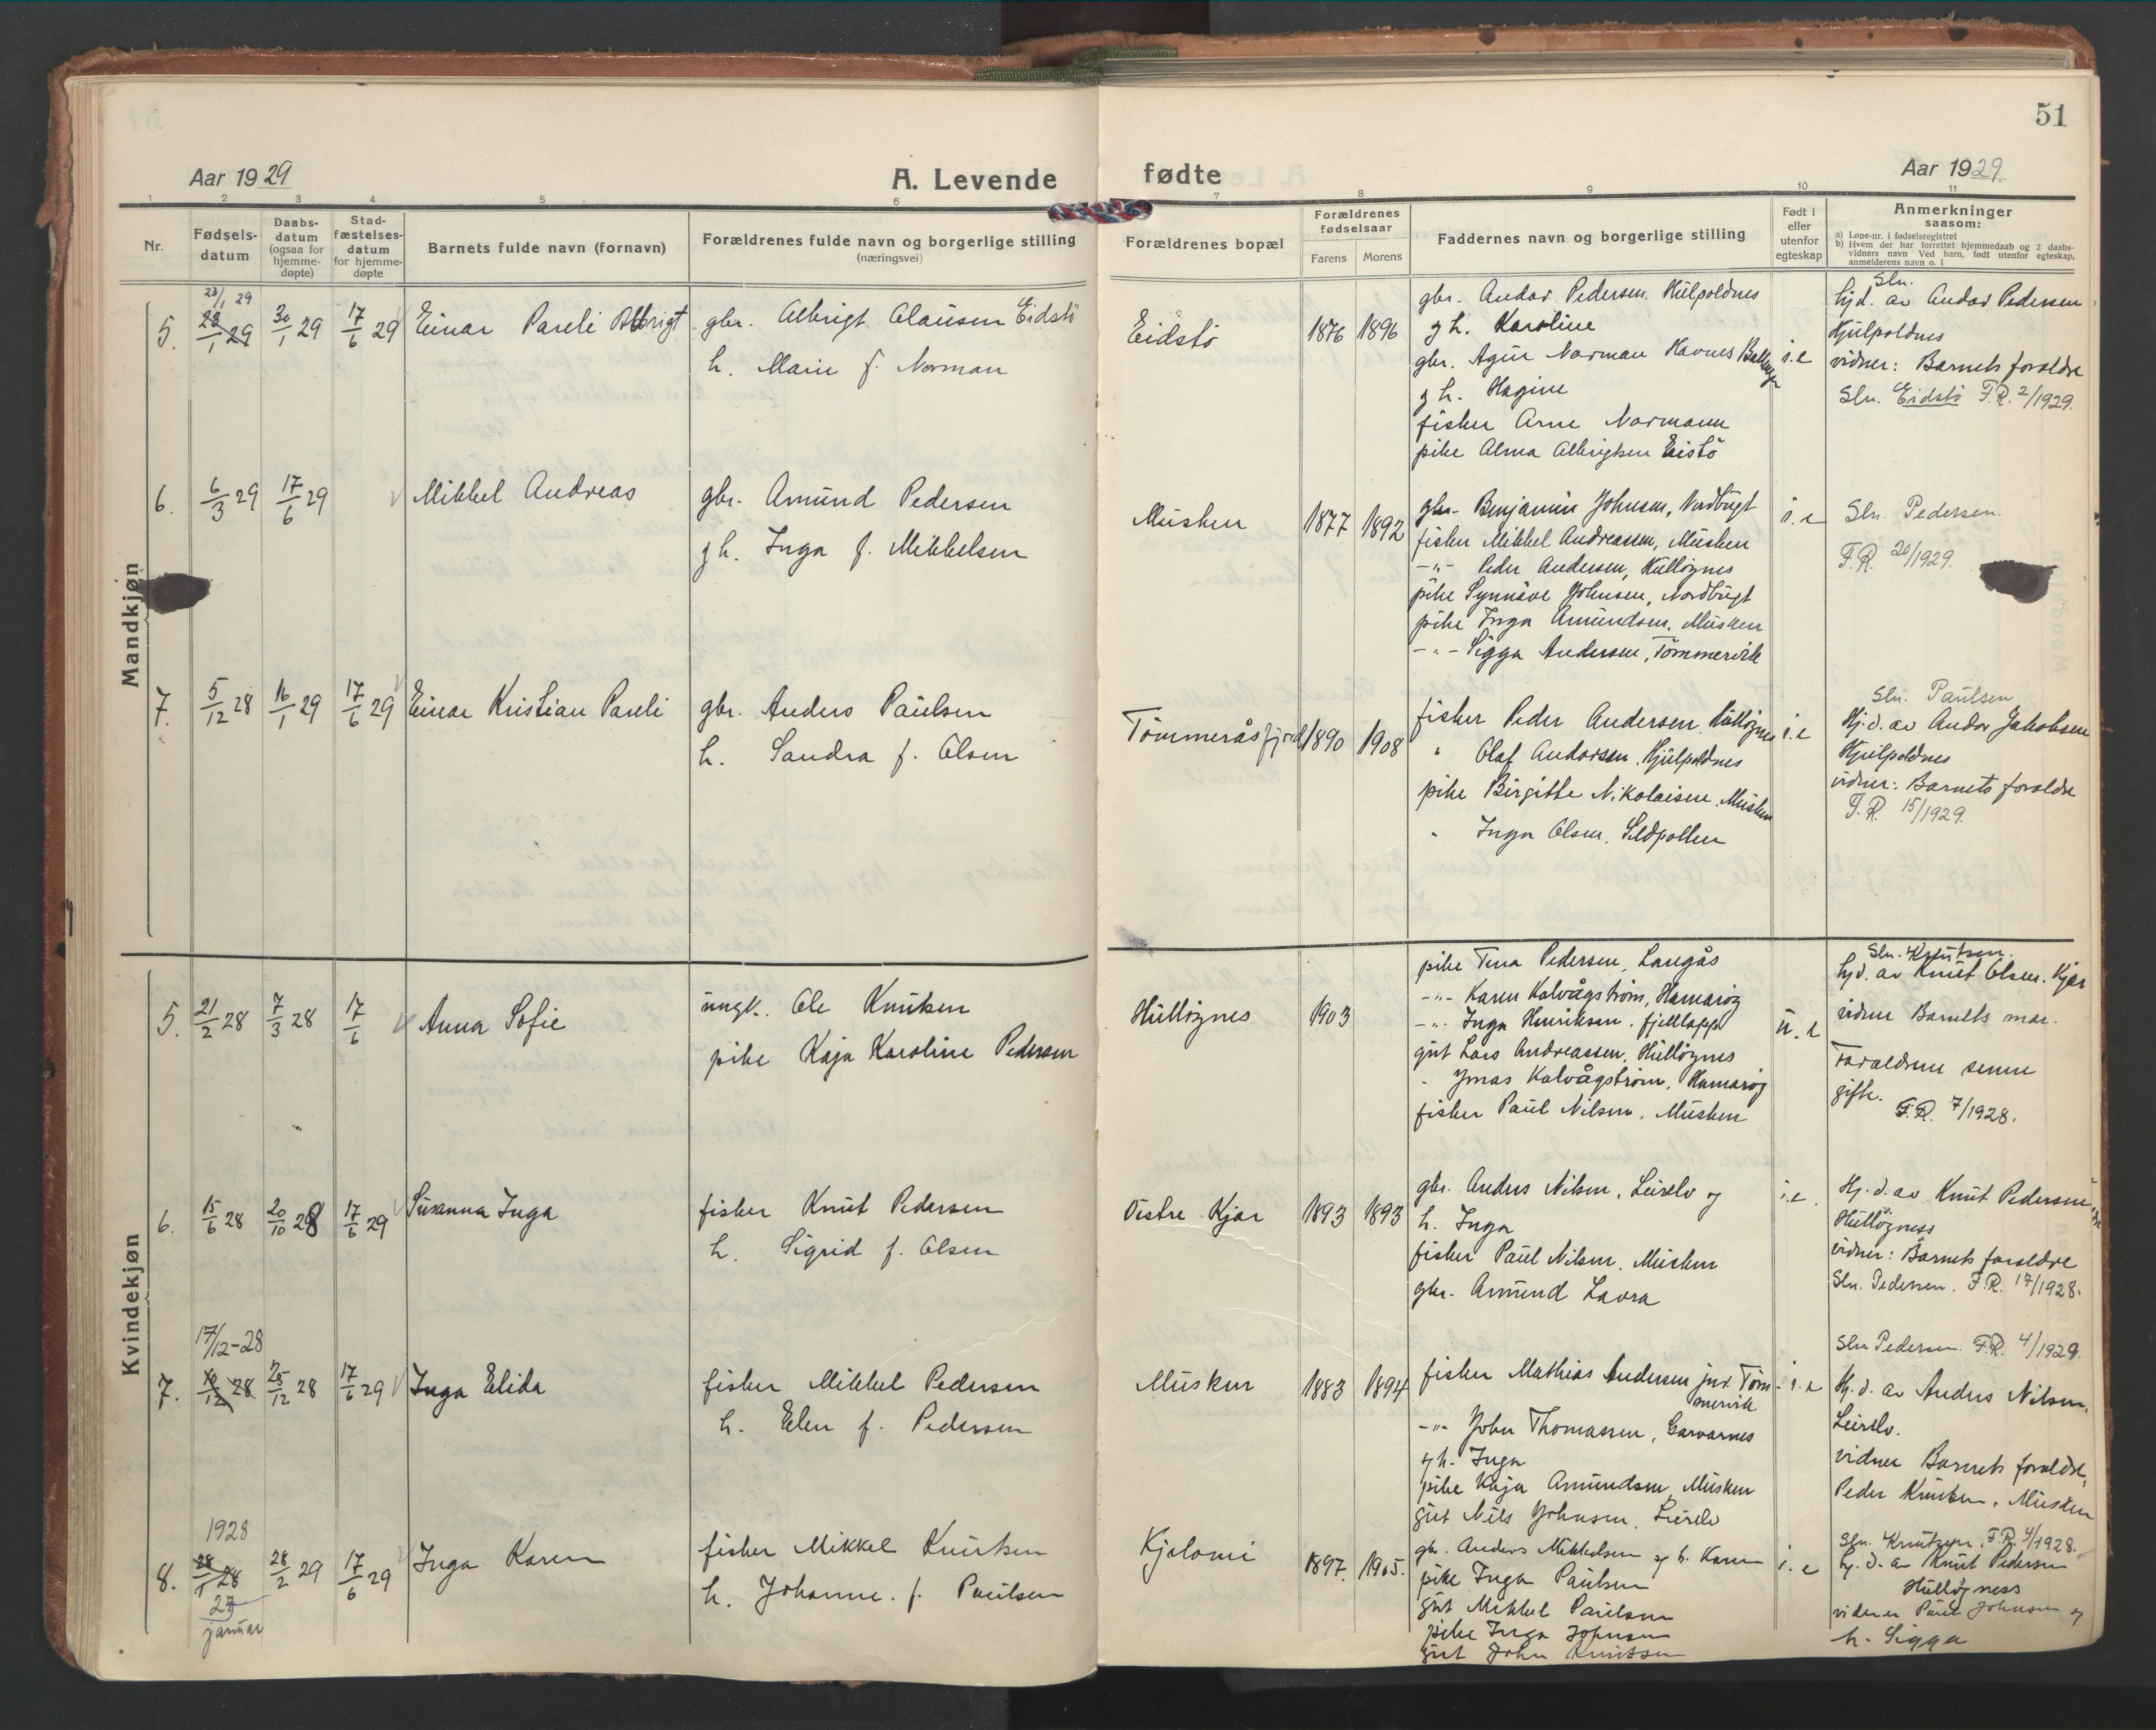 51
Aar 1929
A. Levende fødte
Aar 1929.
1 2 3 4 5 6 7 8 9 10 11
Nr.
Fødsels-
datum
Daabs-
datum
(ogsaa for
hjemme-
døpte)
Stad-
fæstelses-
datum
for hjemme-
døpte
Barnets fulde navn (fornavn)
Forældrenes fulde navn og borgerlige stilling
(næringsvei)
Forældrenes bopæl
Forældrenes
fødselsaar
Farens Morens
Faddernes navn og borgerlige stilling
Født i
eller
utenfor
egteskap
Anmerkninger
saasom:
a) Løpe-nr. i fødselsregistret
b) Hvem der har forrettet hjemmedaab og 2 daabs-
vidners navn Ved barn, født utenfor egteskap,
anmelderens navn o. l
Mandkjøn
5. 29 30/1 29 17/6 29 Einar Pareli Albrigt
gbr. Albrigt Clausen Eidstö
h. Marie f. Norman
Eidstö 1876 1896
gbr. Andor Pedersen Hulpoldnes
g h. Karoline
gbr. Agur Norman Havnes
g h. Hagine
fisker Arne Normann
pike Alma Albrigtsen Eistö
i.e
Sln.
hjd. av Andor Pedersen
Hjulpoldnes
vidner: Barnets foraldre
Sln. Eidstö F.R. 2/1929.
6. 6/3 29 17/6 29 Mikkel Andreas
gbr. Amund Pedersen
g h. Inga f. Mikkelsen
Musken 1877 1892
gbr. Benjamin Johnsen, Nordbugt
fisker Mikkel Andreassen, Musken
-"- Peder Andersen, Hulløgnes
pike Synnøve Johnsen, Nordbugt
pike Inga Amundsen, Musken
-"- Sigga Andersen, Tömmervik
i.e
Sln. Pedersen.
F.R. 20/1929.
7. 5/12 28 16/1 29 17/6 29 Einar Kristian Pareli
gbr. Anders Paulsen
h. Sandra f. Olsen
Tömmeråsfjord 1890 1908
fisker Peder Andersen, Hulløgnes
" Olaf Andorsen, Hjulpoldnes
pike Birgitte Nikolaisen, Musken
" Inga Olsen, Sildpollen
i.e
Sln. Paulsen
Hj.d. av Andor Jakobsen
Hjulpoldnes
vidner: Barnets foraldre
F.R. 15/1929.
Kvindekjøn
5. 21/2 28 7/3 28 17/6 Anna Sofie
ungk. Ole Knutsen
pike Kaja Karoline Pedersen
Hulløgnes 1903
pike Tina Pedersen, Langås
-"- Karen Kalvågstrøm, Hamarøy
-"- Inga Henriksen, fjellapp
gut Lars Andreassen, Hulløgnes
" Jonas Kalvågstrøm, Hamarøy
fisker Paul Nilsen, Musken
u.e
Sln. Knutsen.
hjd. av Knut Olsen, Kjær
vidner Barnets mor.
Foraldrene senere
gifte.
F.R. 7/1928.
6. 15/6 28 20/10 28 17/6 29 Susanna Inga
fisker Knut Pedersen
h. Sigrid f. Olsen
Vistre Kjær 1893 1893
gbr. Anders Nilsen, Leirelv og
h. Inga
fisker Paul Nilsen, Musken
gbr. Amund Lavra
i.e.
Hj.d. av Knut Pedersen
Hulløgness
vidner: Barnets foraldre
Sln. Pedersen. F.R. 17/1928.
17/12-28
7. 28 25/12 28 17/6 29 Inga Elida
fisker Mikkel Pedersen
h. Elen f. Pedersen
Musken 1883 1894
fisker Mathias Andersen jnr. Töm-
mervik
-"- John Thomassen, Garvarnes
g h. Inga
pike Kaja Amundsen, Musken
gut Nils Johnsen, Leirelv
i.e
Sln Pedersen F.R. 4/1929.
Hj.d. av Anders Nilsen,
Leirelv.
vidner Barnets foraldre,
Peder Knutsen, Musken
1928
8. 28/1 28 28/2 29 17/6 29 Inga Karen
27
januar
fisker Mikkel Knutsen
h. Johanne f. Paulsen
Kjelomi 1897. 1905.
gbr. Anders Mikkelsen og h. Karen
pike Inga Paulsen
gut Mikkel Paulsen
pike Inga Johnsen
gut John Knutsen
i.e
Sln. Knutsen. F.R. 4/1928.
hj.d. av Knut Pedersen
Hulløgness
vidner Paul Johnsen og
h. Sigga